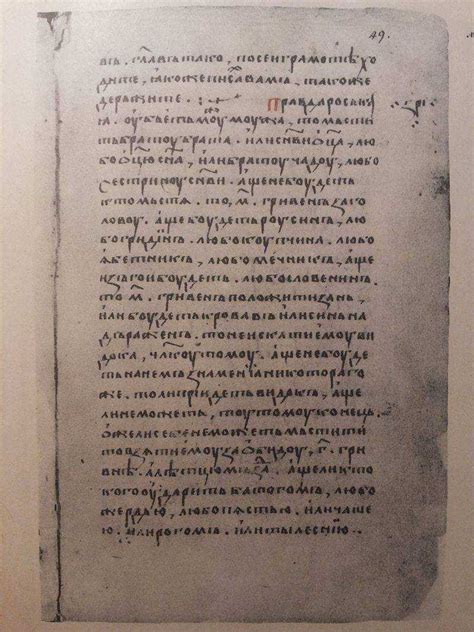 49.
въ . главъша тако , по сеи грамотѣ хо
дите , ꙗкоже писах вамъ , такоже
держите . : Правда роськаꙗ
а . оубьеть моу моужа , то мьсти
ть братоу брата . или сынви ѿца , лю
бо ѿцю сна , или братоу чадоу , любо
сестриноу снви . аще не боудеть
кто мьстꙗ . то , м҃ . гривенъ за го
ловоу . аще боудеть роусинъ , лю
бо гридинъ . любо коупчина . любо
ꙗбетникъ , любо мечникъ , аще
изъгои боудеть . любо словенинъ .
то м҃ . гривенъ положити за нь ,
или боудеть кровавъ или синь на
дъраженъ . то не искати емоу ви
дока , чл҃коу томоу . аще не боуде
ть на немъ знамениꙗ никотораго
же . то ли придеть видокъ , аще
ли не можеть , тоу томоу конець .
оже ли себе не можеть мьстити
то взꙗти емоу за обидоу , г҃ . гри
внѣ . а лѣтцю мъзда . аще ли кто
кого оударить батогомъ , любо
жердью , любо пꙗстью . или чаше
ю . или рогомъ . или тылеснию .